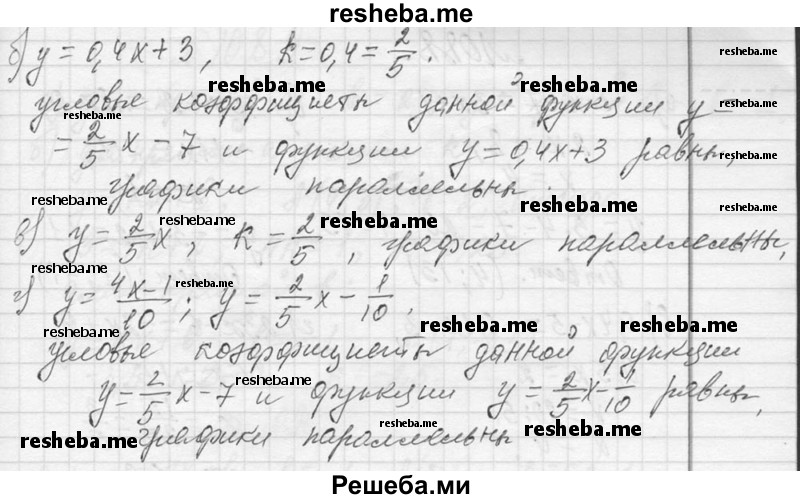 resheba.me
б) y = 0,4x + 3, k = 0,4 = 2/5. resheba.me
resheba.me resheba.me
угловые коэффициенты данной функции y = resheba.me
resheba.me
= 2/5 x - 7 и функции y = 0,4x + 3 равны,
resheba.me
графики параллельны.
resheba.me resheba.me resheba.me resheba.me
в) y = 2/5 x, k = 2/5, графики параллельны,
г) y = 4x-1/10; y = 2/5 x - 1/10, resheba.me
resheba.me resheba.me resheba.me
угловые коэффициенты данной функции
resheba.me resheba.me
y = 2/5 x - 7 и функции y = 2/5 x - 1/10 равны,
resheba.me resheba.me resheba.me
графики параллельны
Решеба.ми